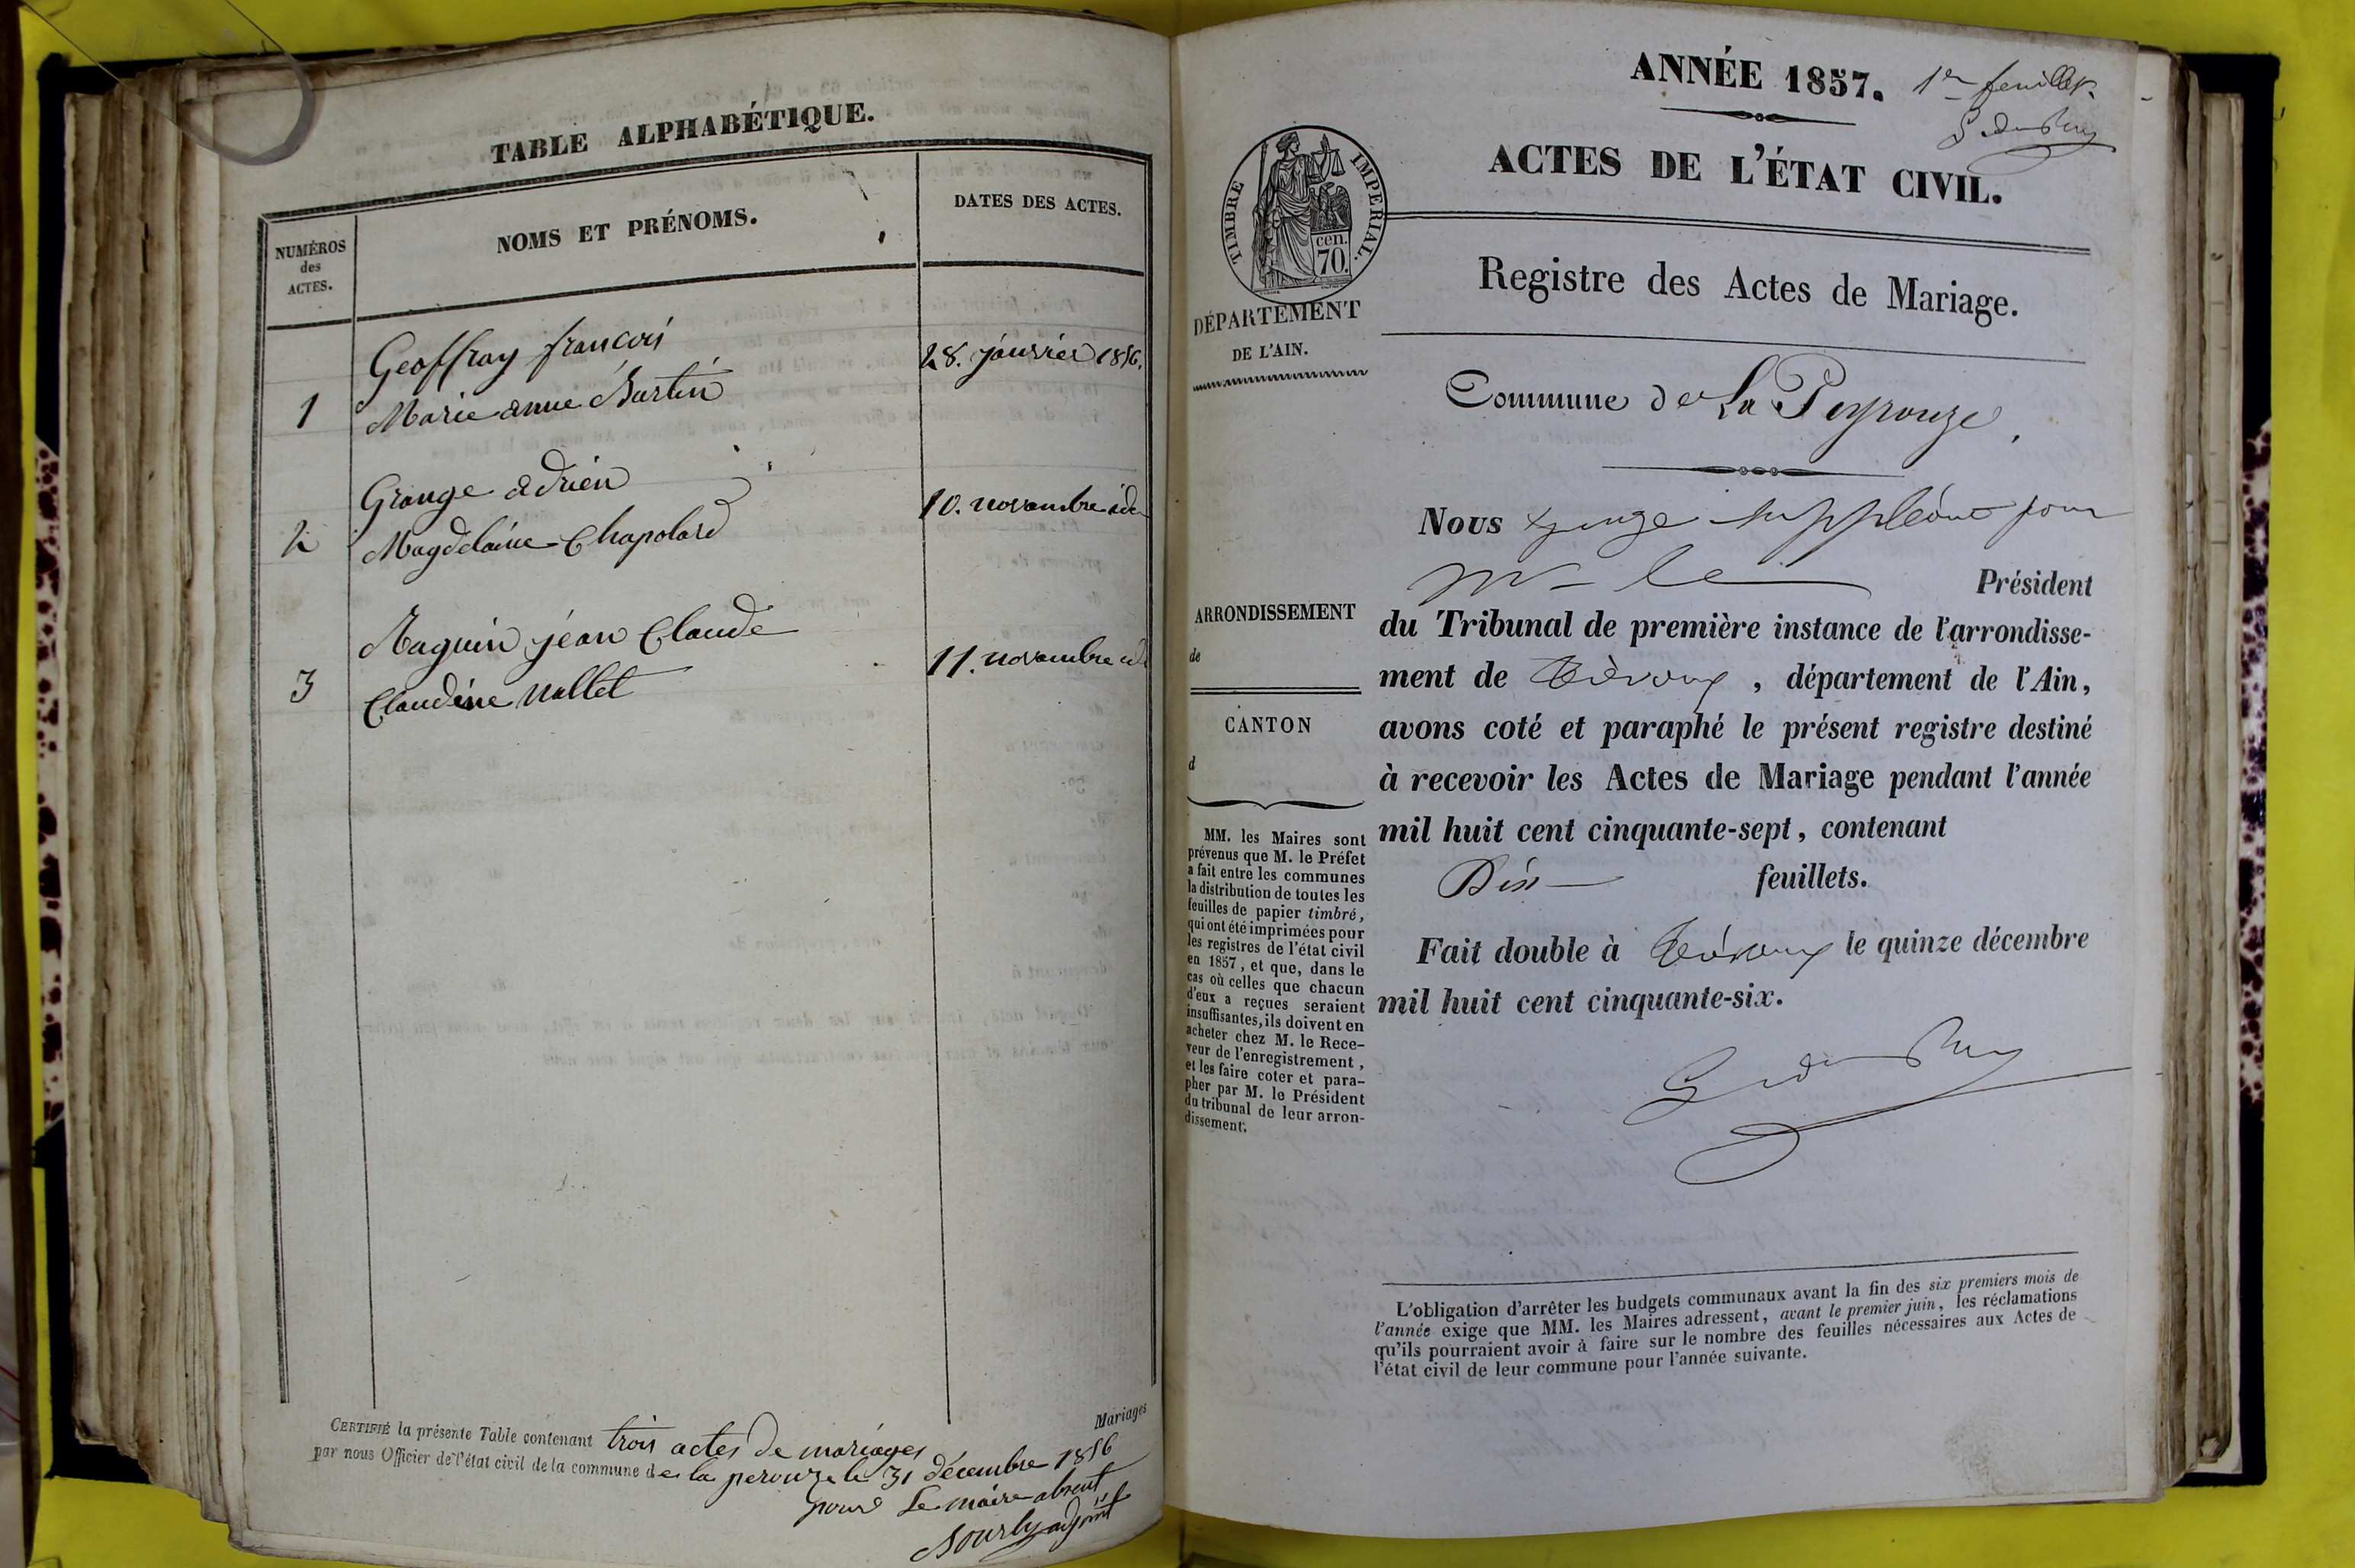 TABLE ALPHABÉTIQUE.
NUMÉROS
des
ACTES.
NOMS ET PRÉNOMS.
DATES DES ACTES.
1
Geoffray françois
Marie anne Burtin
28. janvier 1856.
2
Grange adrien
Magdelaine Chapolard
10. novembre idem
3
Maguin jean Claude
Claudine Nallet
11. novembre id
CERTIFIÉ la présente Table contenant trois actes de mariages Mariages
par nous Officier de l'état civil de la commune de la perouze le 31 décembre 1856
pour Le maire absent
adjoint
ANNÉE 1857.
1er feuillet.
ACTES DE L'ÉTAT CIVIL.
TIMBRE IMPERIAL.
cen.
70.
DÉPARTEMENT
DE L'AIN.
Registre des Actes de Mariage.
Commune de La Peyrouze,
Nous juge suppléant pour
Mr le Président
du Tribunal de première instance de l'arrondisse-
ment de Trévoux, département de l'Ain,
avons coté et paraphé le présent registre destiné
à recevoir les Actes de Mariage pendant l'année
mil huit cent cinquante-sept, contenant
Dix feuillets.
Fait double à Trévoux le quinze décembre
mil huit cent cinquante-six.
ARRONDISSEMENT
de
CANTON
d
MM. les Maires sont
prévenus que M. le Préfet
a fait entre les communes
la distribution de toutes les
feuilles de papier timbré,
qui ont été imprimées pour
les registres de l'état civil
en 1857, et que, dans le
cas où celles que chacun
d'eux a reçues seraient
insuffisantes, ils doivent en
acheter chez M. le Rece-
veur de l'enregistrement,
et les faire coter et para-
pher par M. le Président
du tribunal de leur arron-
dissement.
L'obligation d'arrêter les budgets communaux avant la fin des six premiers mois de
l'année exige que MM. les Maires adressent, avant le premier juin, les réclamations
qu'ils pourraient avoir à faire sur le nombre des feuilles nécessaires aux Actes de
l'état civil de leur commune pour l'année suivante.